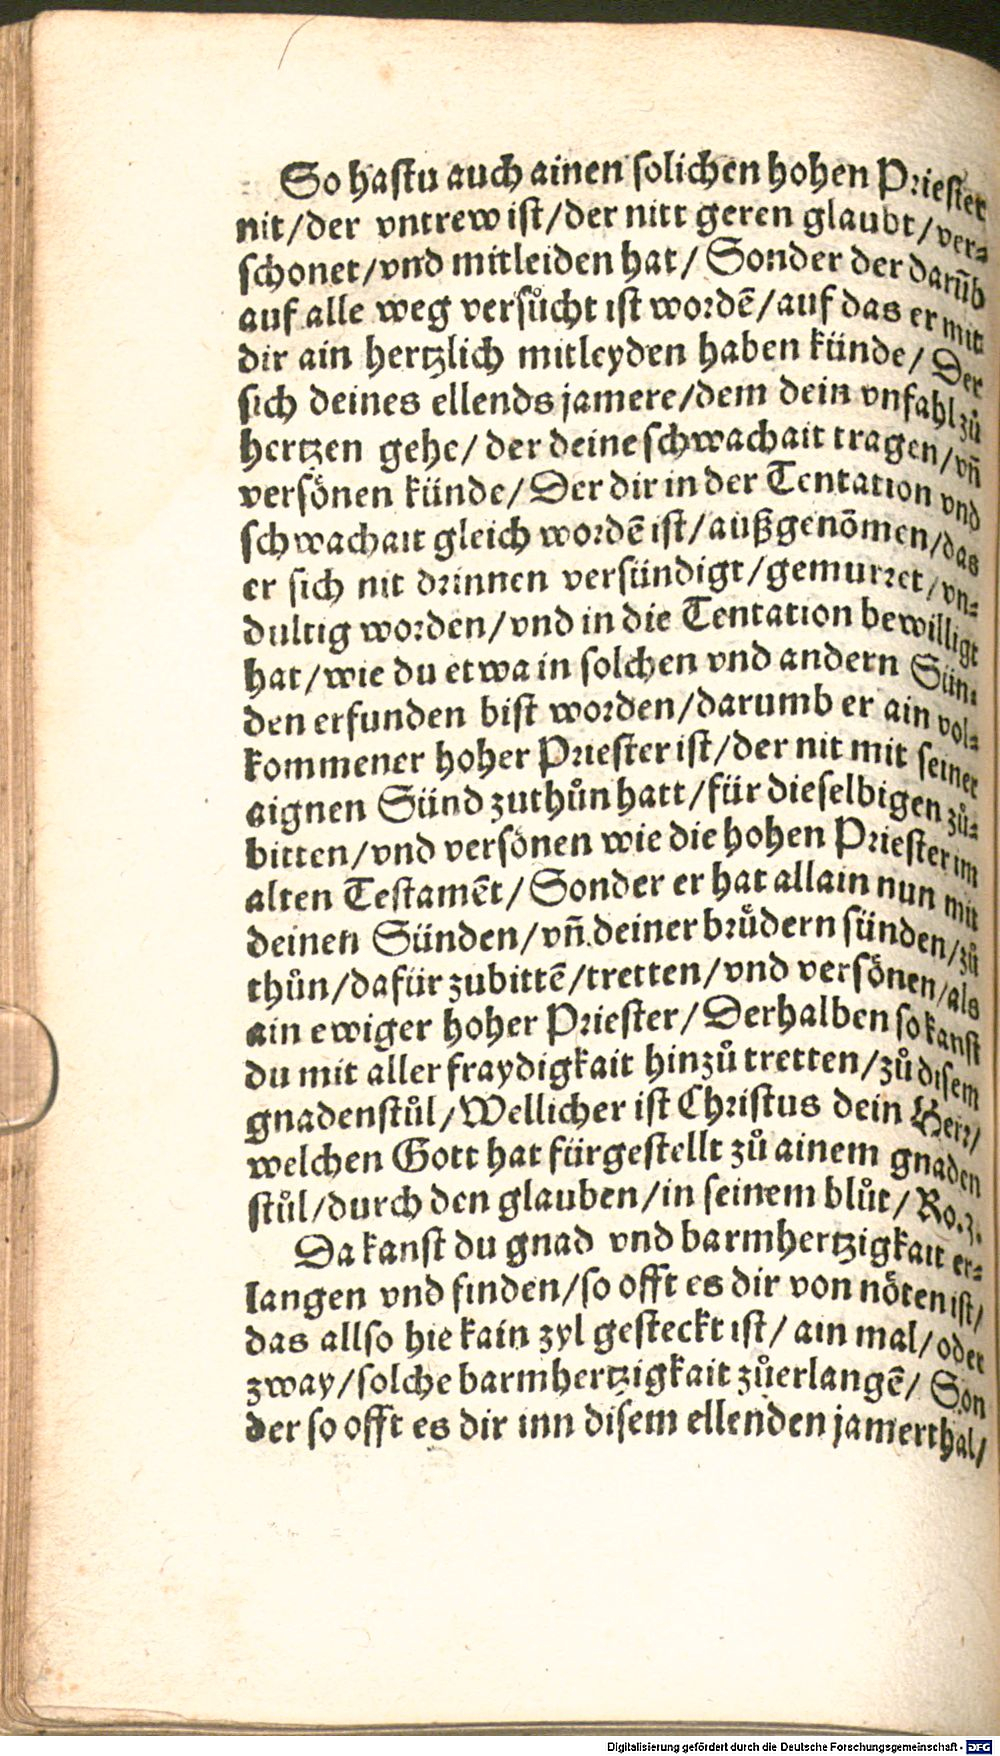 So hastu auch ainen solichen hohen Priester
nit/der vntrew ist/der nitt geren glaubt/ver⸗
schonet/vnd mitleiden hat/ Sonder der darūb
auf alle weg versůcht ist wordē/auf das er mit
dir ain hertzlich mitleyden haben künde/ Der
sich deines ellends jamere/dem dein vnfahl zů
hertzen gehe/ der deine schwachait tragen/vñ
versönen künde/ Der dir in der Tentation vnd
schwachait gleich wordē ist/außgenōmen/das
er sich nit drinnen versündigt/gemurret/vn⸗
dultig worden/vnd in die Tentation bewilligt
hat/wie du etwa in solchen vnd andern Sün⸗
den erfunden bist worden/darumb er ain vol⸗
kommener hoher Priester ist/der nit mit seiner
aignen Sünd zuthůn hatt/für dieselbigen zů⸗
bitten/vnd versönen wie die hohen Priester im
alten Testamēt/ Sonder er hat allain nun mit
deinen Sünden/vñ deiner brůdern sünden/zů
thůn/dafür zubittē/tretten/vnd versönen/als
ain ewiger hoher Priester/ Derhalben so kanst
du mit aller fraydigkait hinzů tretten/zů disem
gnadenstůl/Wellicher ist Christus dein Herr/
welchen Gott hat fürgestellt zů ainem gnaden
stůl/durch den glauben/in seinem blůt/ Ro.3.
Da kanst du gnad vnd barmhertzigkait er⸗
langen vnd finden/so offt es dir von nöten ist/
das allso hie kain zyl gesteckt ist/ ain mal/ oder
zway/solche barmhertzigkait zůerlangē/ Son
der so offt es dir inn disem ellenden jamerthal/
Digitalisierung gefördert durch die Deutsche Forschungsgemeinschaft - DFG